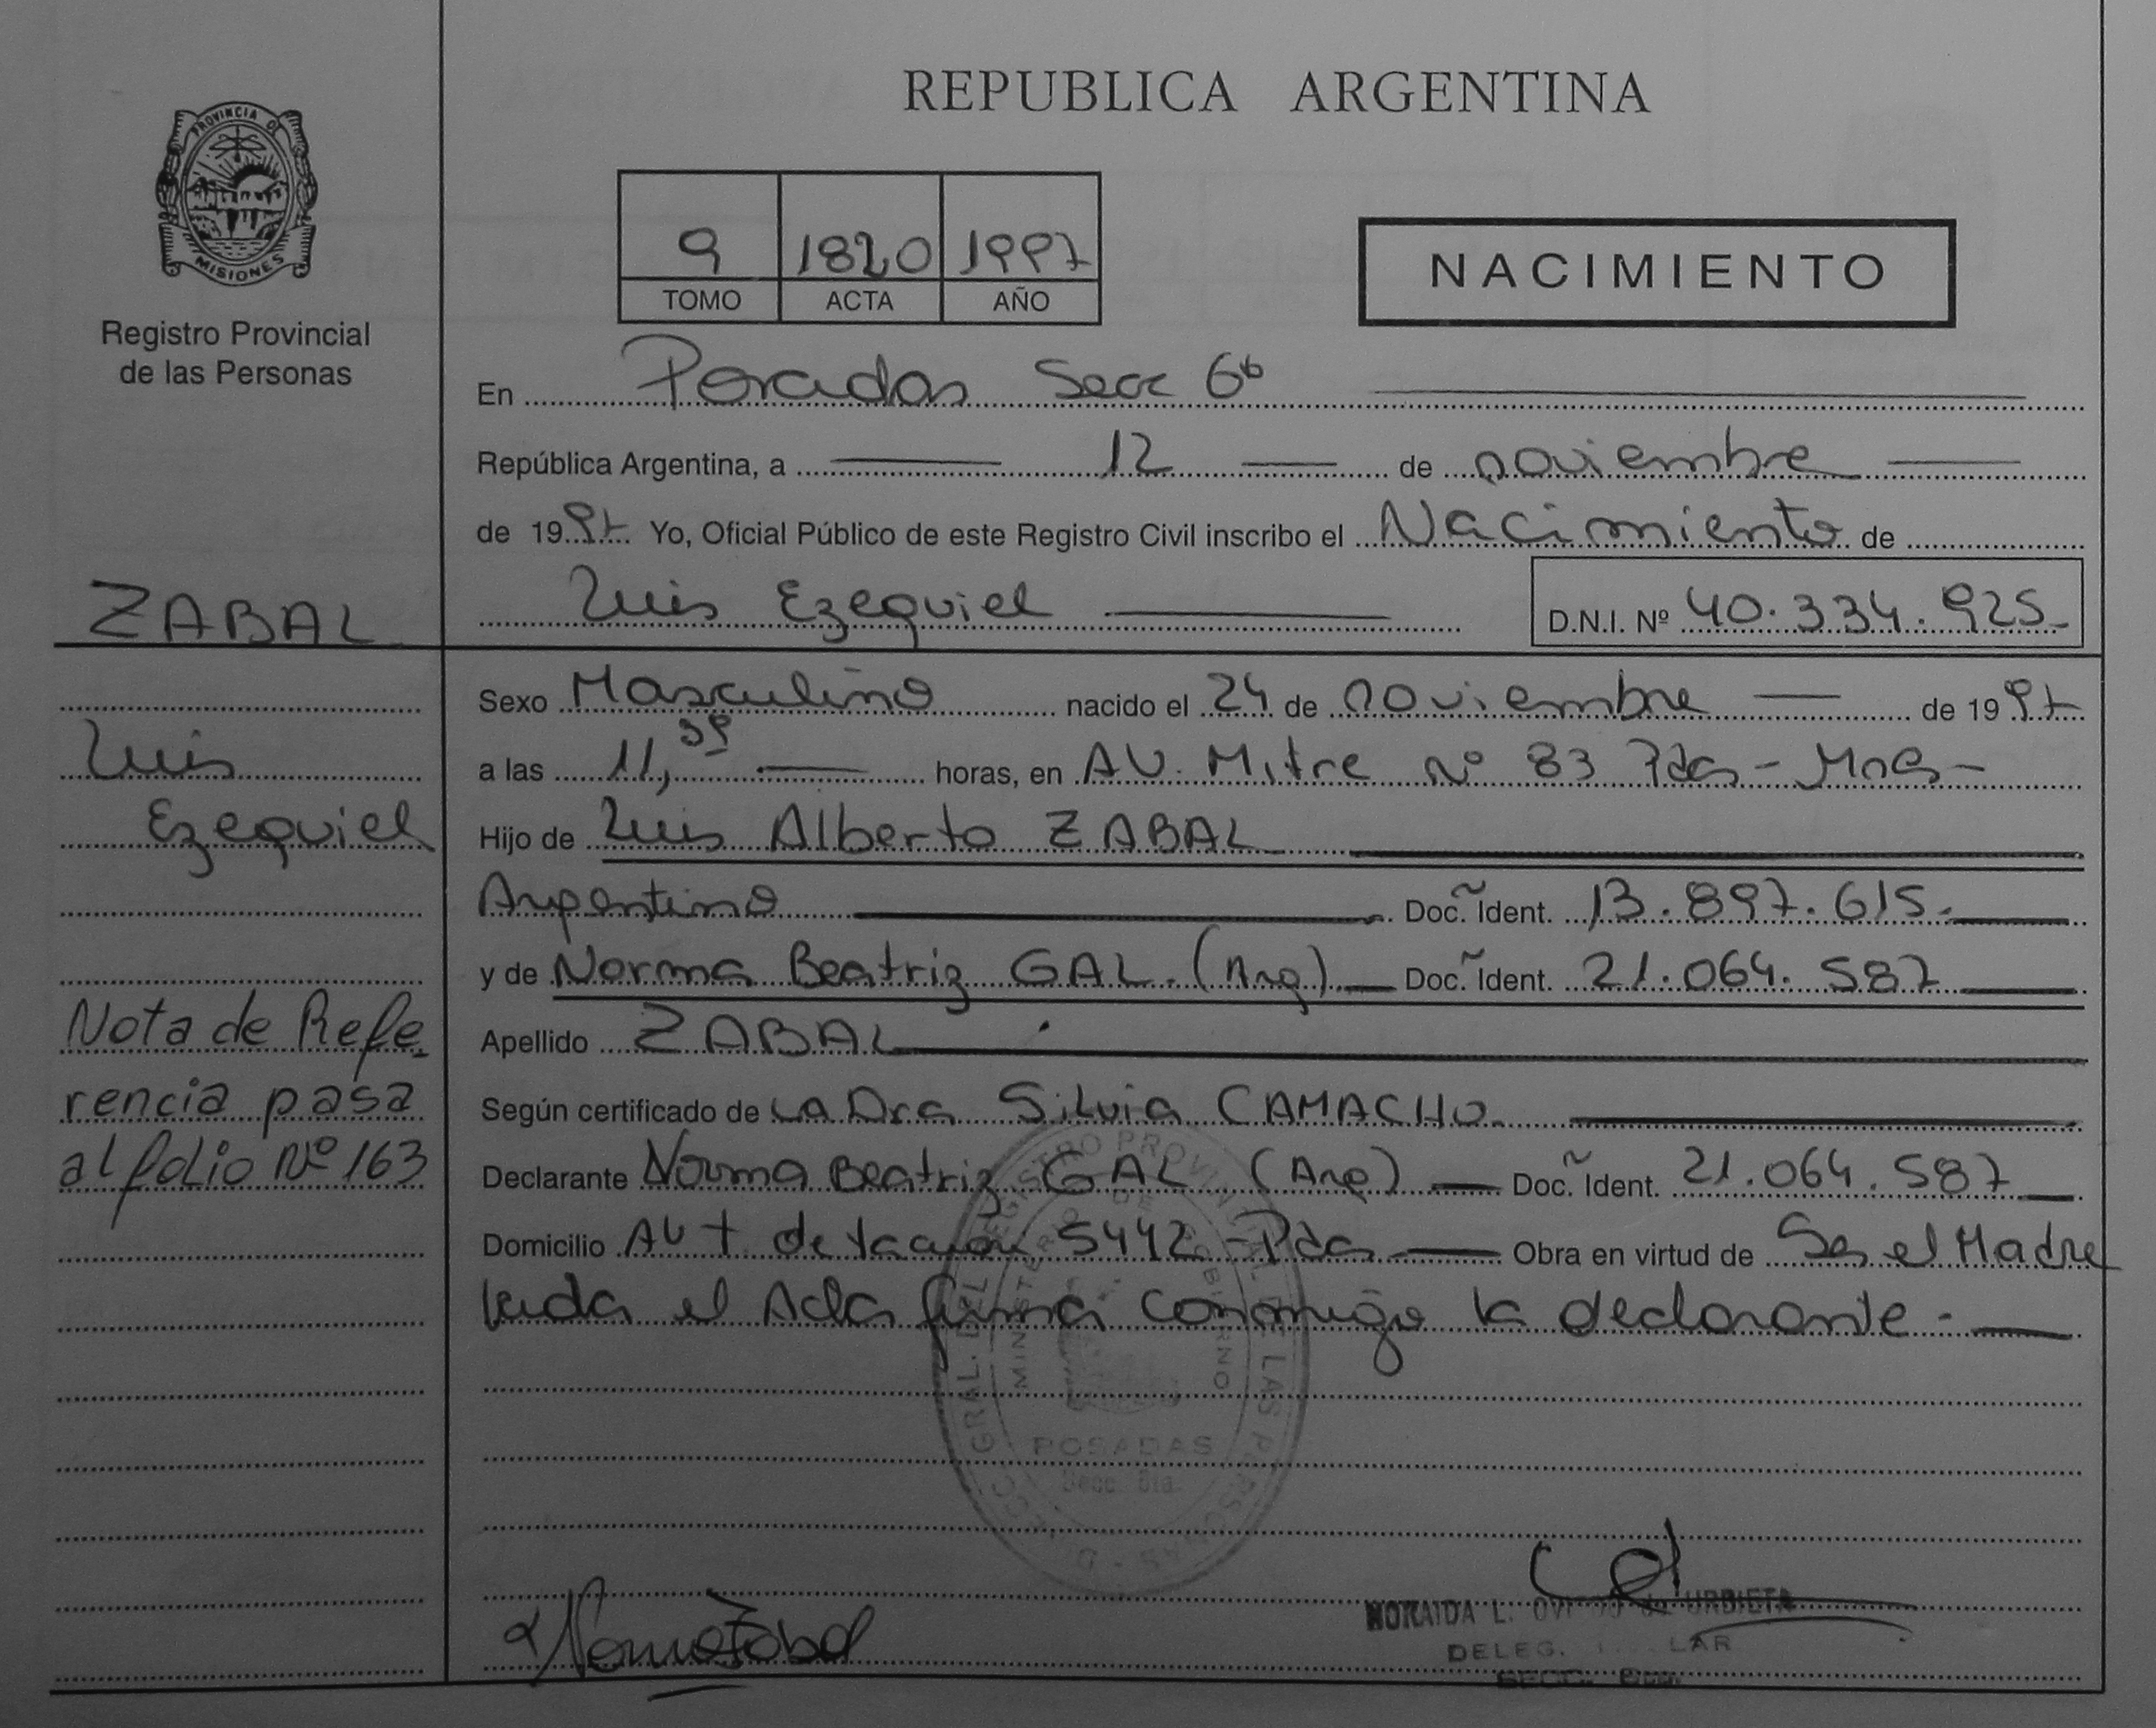 REPUBLICA ARGENTINA
PROVINCIA DE
MISIONES
Registro Provincial
de las Personas
9 1820 1997
TOMO ACTA AÑO
NACIMIENTO
En Posadas Secc 6ta
República Argentina, a 12 de noviembre
de 1997 Yo, Oficial Público de este Registro Civil inscribo el Nacimiento de
Luis Ezequiel D.N.I. Nº 40.334.925
ZABAL
Luis
Ezequiel
Nota de Refe-
rencia pasa
al folio Nº 163
Sexo Masculino nacido el 24 de noviembre de 1997
a las 11,39 horas, en AV. Mitre Nº 83 Pdas - Mnes -
Hijo de Luis Alberto ZABAL
Argentino Doc. Ident. 13.897.615.
y de Norma Beatriz GAL. (Arg) Doc. Ident. 21.064.587
Apellido ZABAL
Según certificado de LA Dra Silvia CAMACHO.
Declarante Norma Beatriz GAL (Arg) Doc. Ident. 21.064.587
Domicilio AV de 5442 - Pdas Obra en virtud de Ser el Madre
Leida el Acta firma conmigo la declarante.-
DIRECC. GRAL. DEL REGISTRO PROVINCIAL DE LAS PERSONAS
MINISTERIO DE GOBIERNO
POSADAS
Secc. 6ta.
Norma Zabal
L. de URBIETA
DELEG.
SECC.